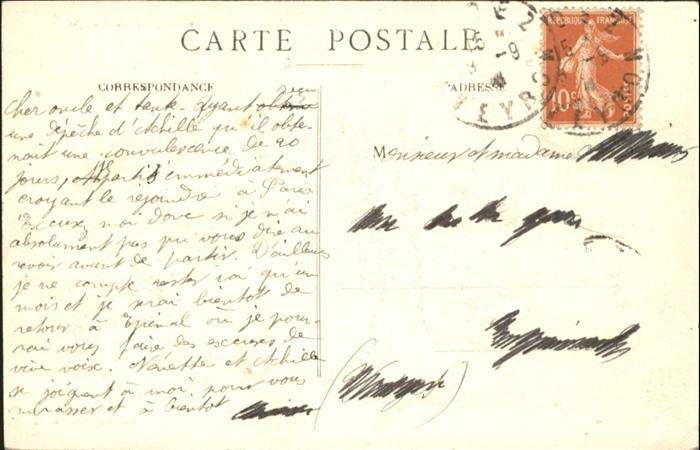 CARTE POSTALE
CORRESPONDANCE
ADRESSE
RÉPUBLIQUE FRANÇAISE
10c
POSTES
VEYRON
cher oncle et tante. ayant
reçu
une dépêche d'Achille qu'il obte-
nait une convalescence de 20
jours, partis immédiatement
croyant le rejoindre à Paris
Excusez moi donc si je n'ai
absolument pas pu vous dire au
revoir avant de partir. D'ailleurs
je ne compte rester ici qu'un
mois et je serai bientot de
retour à Epinal où je pour-
rai vous faire des excuses de
vive voix. et Achille
se joignent à moi pour vous
embrasser et à bientot
Monsieur et madame